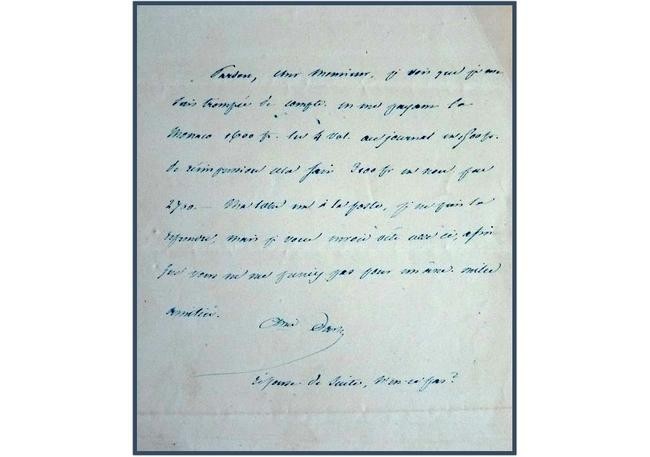 Pardon, cher Monsieur, je vois que je me
suis trompée de compte. en me payant la
Monaco 1600 fr. les 4 vol. au journal et 1500 fr.
de réimpression cela fait 3100 fr et non pas
2700. — Ma lettre est à la poste, je ne puis la
reprendre, mais je vous envoie vite celle ci, afin
que vous ne me preniez pas pour un âne. mille
amitiés.
Dash
réponse de suite, n'en-ce pas?